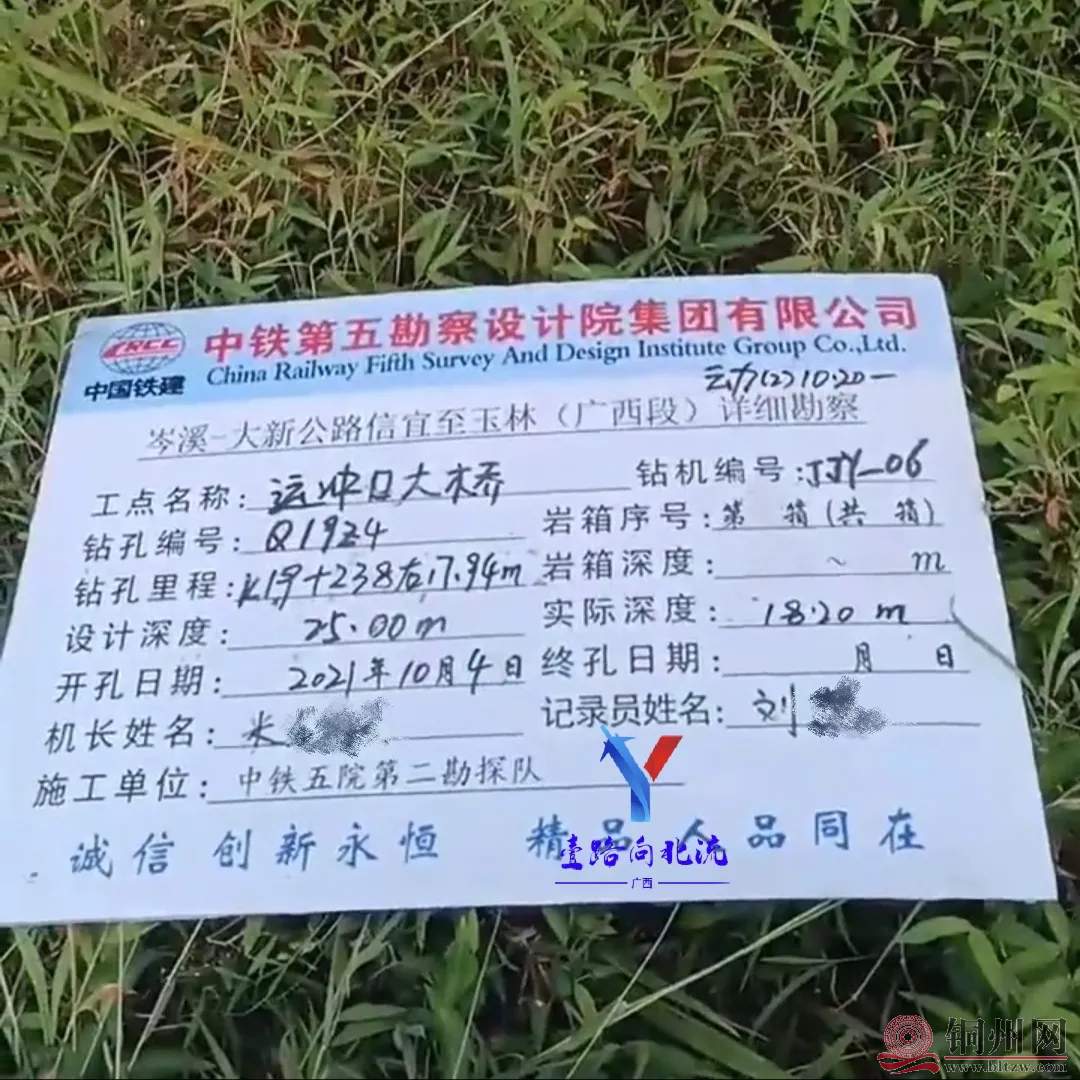 CRCC
中国铁建
中铁第五勘察设计院集团有限公司
China Railway Fifth Survey And Design Institute Group Co.,Ltd.
动力(2)10.20一
岑溪-大新公路信宜至玉林（广西段）详细勘察
工点名称：运冲口大桥 钻机编号：JJY-06
钻孔编号：Q19Z4 岩箱序号：第 箱(共 箱)
钻孔里程：K19+238右17.94m 岩箱深度： ~ m
设计深度：25.00m 实际深度：18.20 m
开孔日期：2021年10月4日 终孔日期： 月 日
机长姓名：米 记录员姓名：刘
施工单位：中铁五院第二勘探队
诚信 创新永恒 精品 人品同在
壹路向北流
广西
铜州网
www.bltzw.com